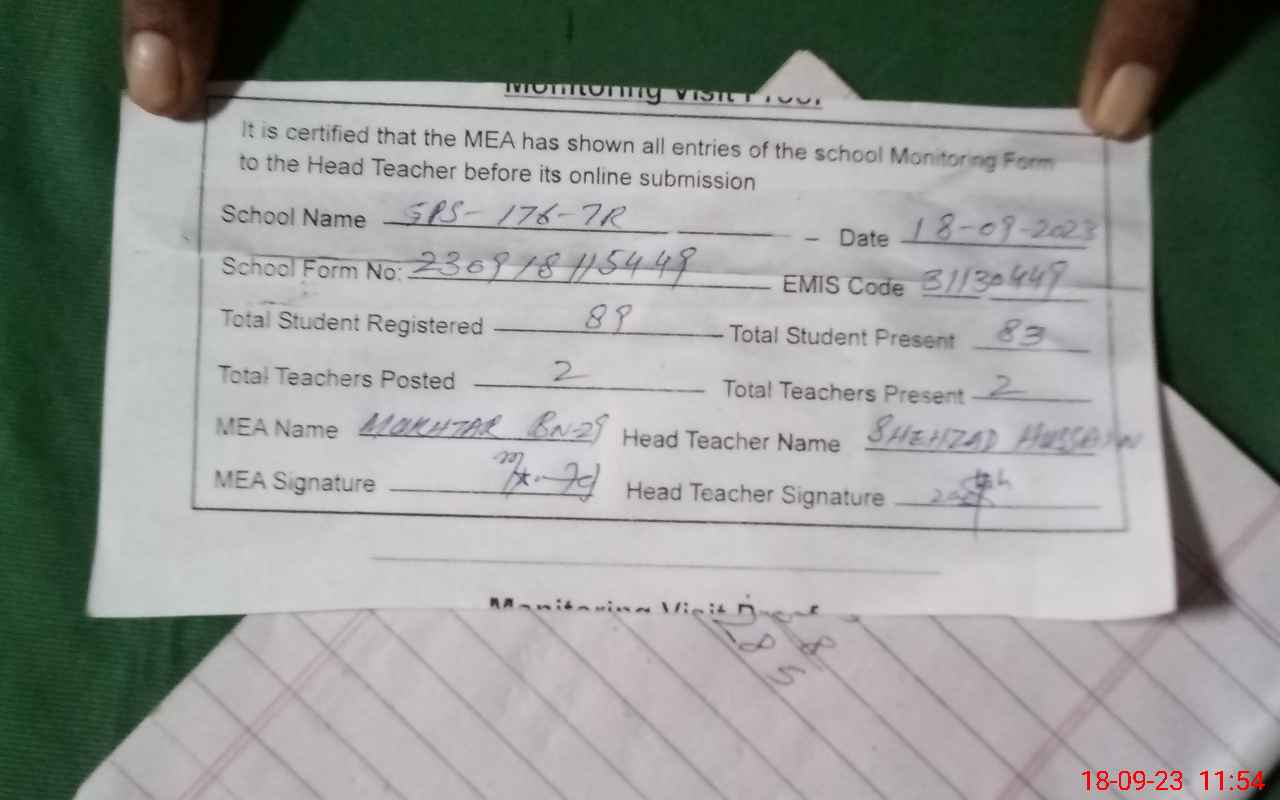 Monitoring Visit Proof
It is certified that the MEA has shown all entries of the school Monitoring Form
to the Head Teacher before its online submission
School Name GPS-176-7R Date 18-09-2023
School Form No: 230918115449 EMIS Code 31130449
Total Student Registered 89 Total Student Present 83
Total Teachers Posted 2 Total Teachers Present 2
MEA Name MUKHTAR BN-29 Head Teacher Name SHEHZAD HUSSAIN
MEA Signature Head Teacher Signature
Monitoring Visit Proof
18-09-23 11:54